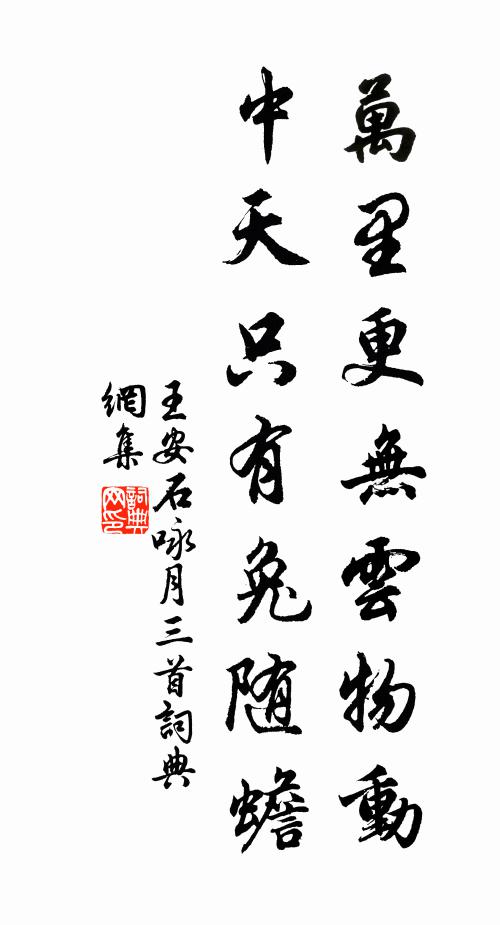 萬里更無雲物動
中天只有兔随蟾
王安石咏月三首詞典
網集
詞典
网印